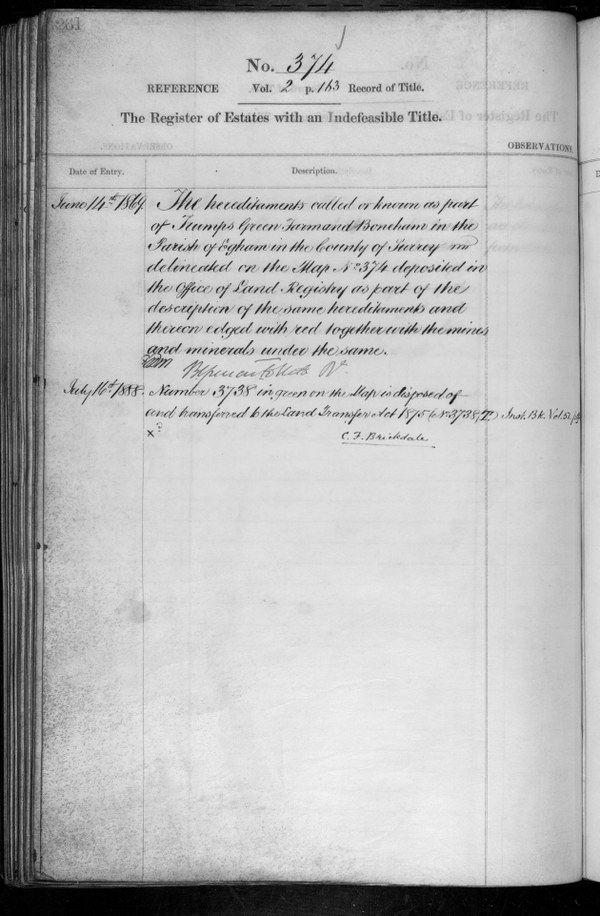 No. 374
REFERENCE Vol. 2 p. 163 Record of Title.
The Register of Estates with an Indefeasible Title.
OBSERVATIONS.
Date of Entry. Description.
June 14th 1869. The hereditaments called or known as part
of Trumps Green Farm and Boneham in the
Parish of Egham in the County of Surrey
delineated on the Map No. 374 deposited in
the Office of Land Registry as part of the
description of the same hereditaments and
thereon edged with red together with the mines
and minerals under the same.
July 16th 1888. Number 3738 in green on the Map is disposed of
and transferred to the Land Transfer Act 1875 (No. 3738, ) Inst. Bk. Vol.
x?
C. F. Brickdale